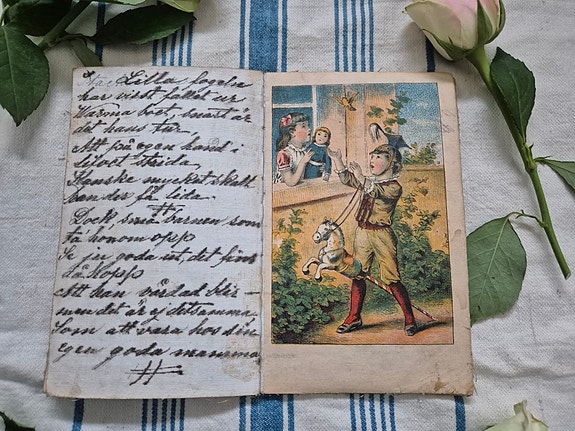 Lilla fogeln
har visst fallit ur
Varma boet, snart är
det hans tur
Att på egen hand i
lifvet strida
Kanske mycket skall
han der få lida.
Dock, små barnen som
ta' honom opp
Se ju goda ut, det fins
då hopp
Att han vårdad blir
men det är ej detsamma
Som att vara hos sin
egen goda mamma